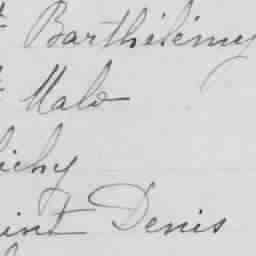 t Barthélémy
t Malo
ichy
int Denis